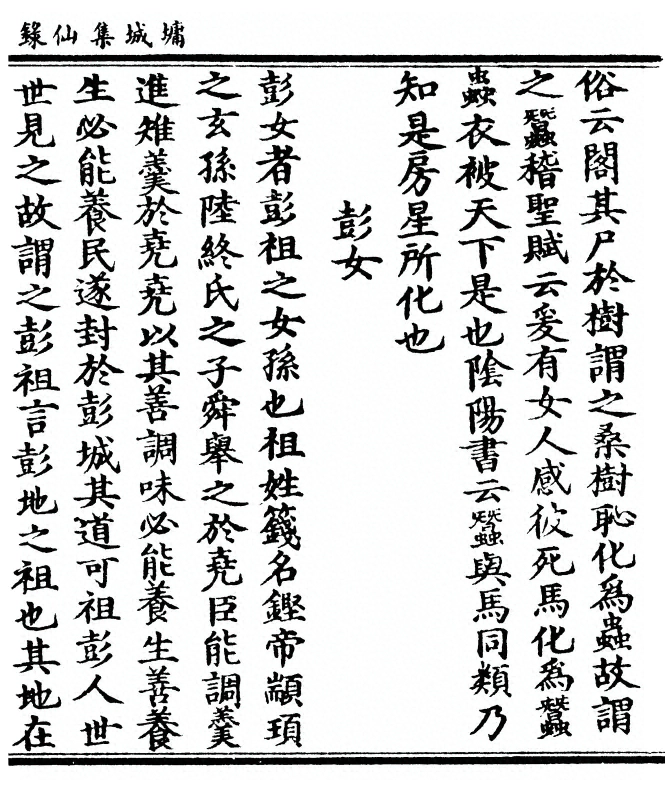 墉城集仙錄
俗云閣其尸於樹謂之桑樹恥化爲蟲故謂
之蠶稽聖賦云爰有女人感彼死馬化爲蠶
蟲衣被天下是也陰陽書云蠶與馬同類乃
知是房星所化也
彭女
彭女者彭祖之女孫也祖姓籛名鏗帝顓頊
之玄孫陸終氏之子舜舉之於堯臣能調羹
進雉羹於堯堯以其善調味必能養生善養
生必能養民遂封於彭城其道可祖彭人世
世見之故謂之彭祖言彭地之祖也其地在